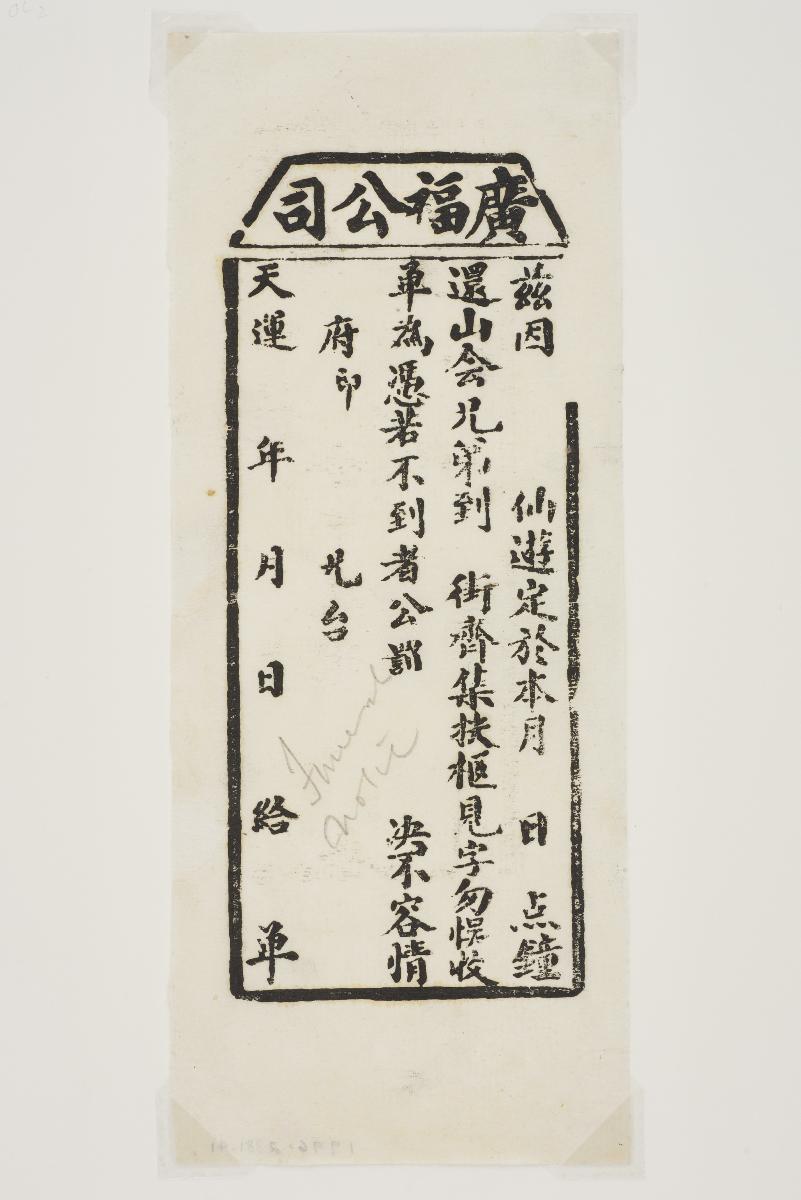 廣福公司
茲因 仙遊定於本月 日 点鐘
還山会兄弟到 街齊集扶柩見字勿悞收
单為憑若不到者公罰 决不容情
府印 兄台
天運 年 月 日 給 单
Funeral
notice